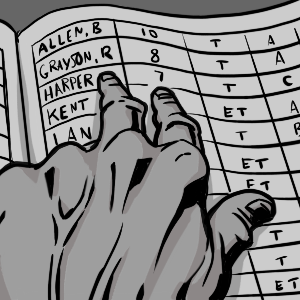 ALLEN, B 10 T A
GRAYSON, R 8 T A
HARPER 7 T C
KENT ET A
IAN T
ET
ET
T
T
ET